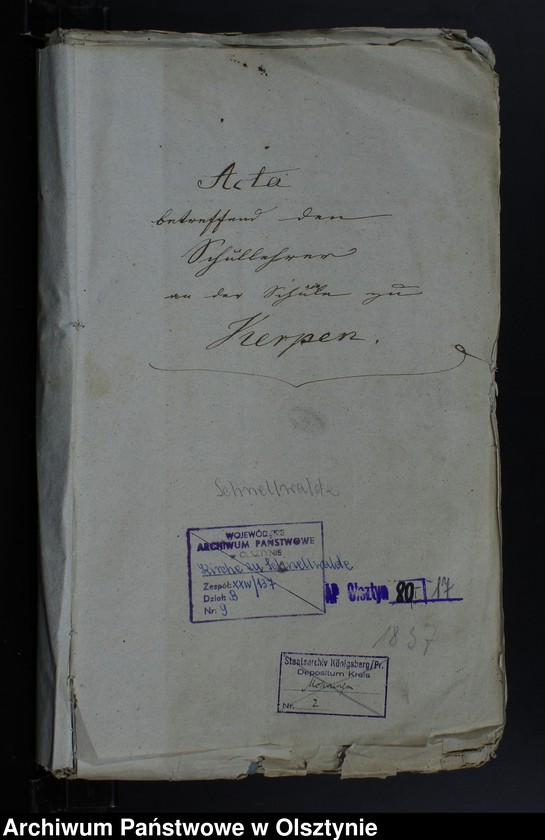 Acta
betreffend den
Schullehrer
an der Schule zu
Kerpen.
Schnellwalde
WOJEWÓDZKIE
ARCHIWUM PAŃSTWOWE
w OLSZTYNIE
Kirche zu Schnellwalde
Zespół: XXIV/137
Dział: B
Nr: 9
AP Olsztyn 20 17
1837
Staatsarchiv Königsberg/Pr.
Depositum Kreis
Mohrungen
Nr. 2
Archiwum Państwowe w Olsztynie